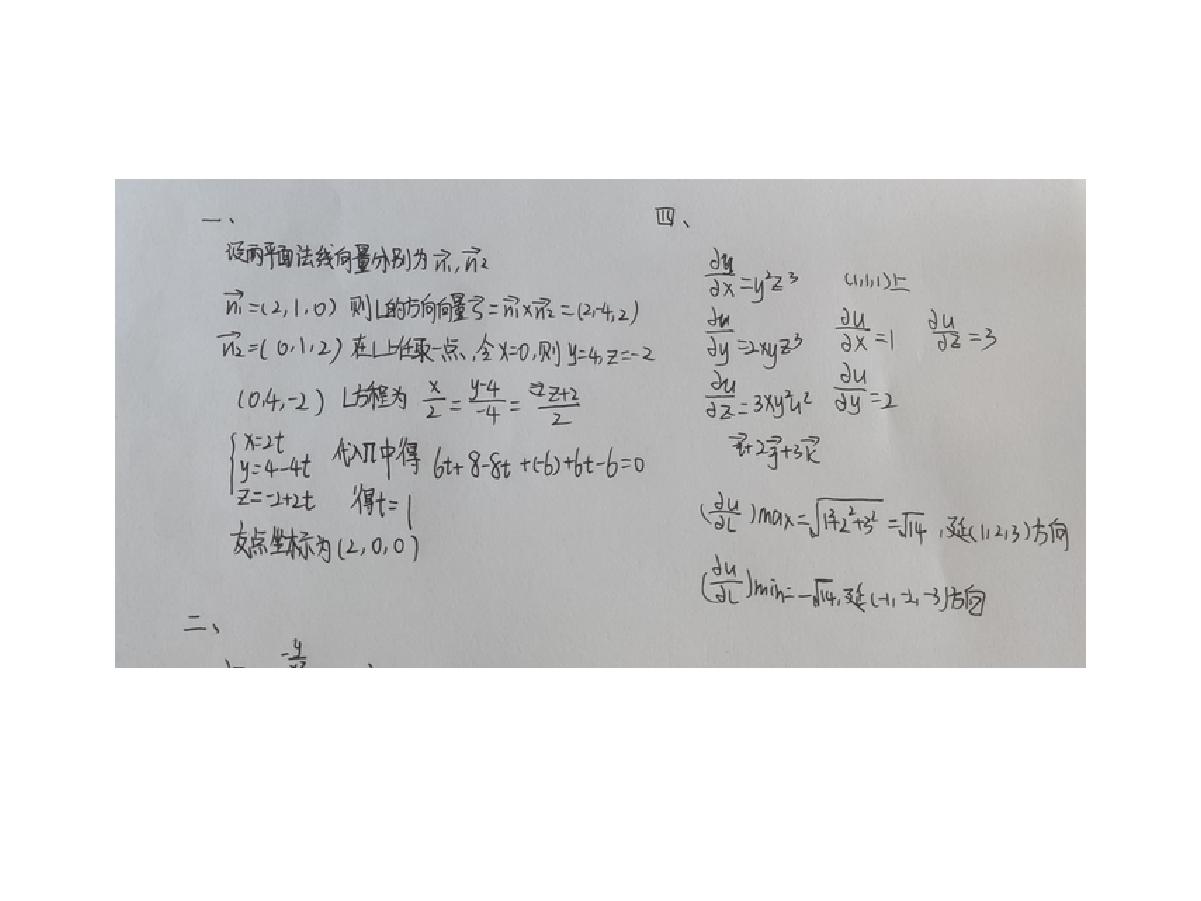 一、
设两平面法线向量分别为 n₁⃗, n₂⃗
n₁⃗=(2,1,0) 则L的方向向量 s⃗=n₁⃗×n₂⃗=(2,-4,2)
n₂⃗=(0,1,2) 在L上任取一点、令x=0,则y=4,z=-2
(0,4,-2) L方程为 x/2=(y-4)/-4=(z+2)/2
x=2t
y=4-4t 代入Π中得 6t+8-8t+(-6)+6t-6=0
z=-2+2t 得t=1
交点坐标为(2,0,0)
二、
-y
四、
∂u/∂x=y²z³ (1,1,1)上
∂u/∂y=2xyz³ ∂u/∂x=1 ∂u/∂z=3
∂u/∂z=3xy²z² ∂u/∂y=2
i⃗+2j⃗+3k⃗
(∂u/∂L)max=√(1²+2²+3²)=√14,延(1,2,3)方向
(∂u/∂L)min=-√14,延(-1,-2,-3)方向